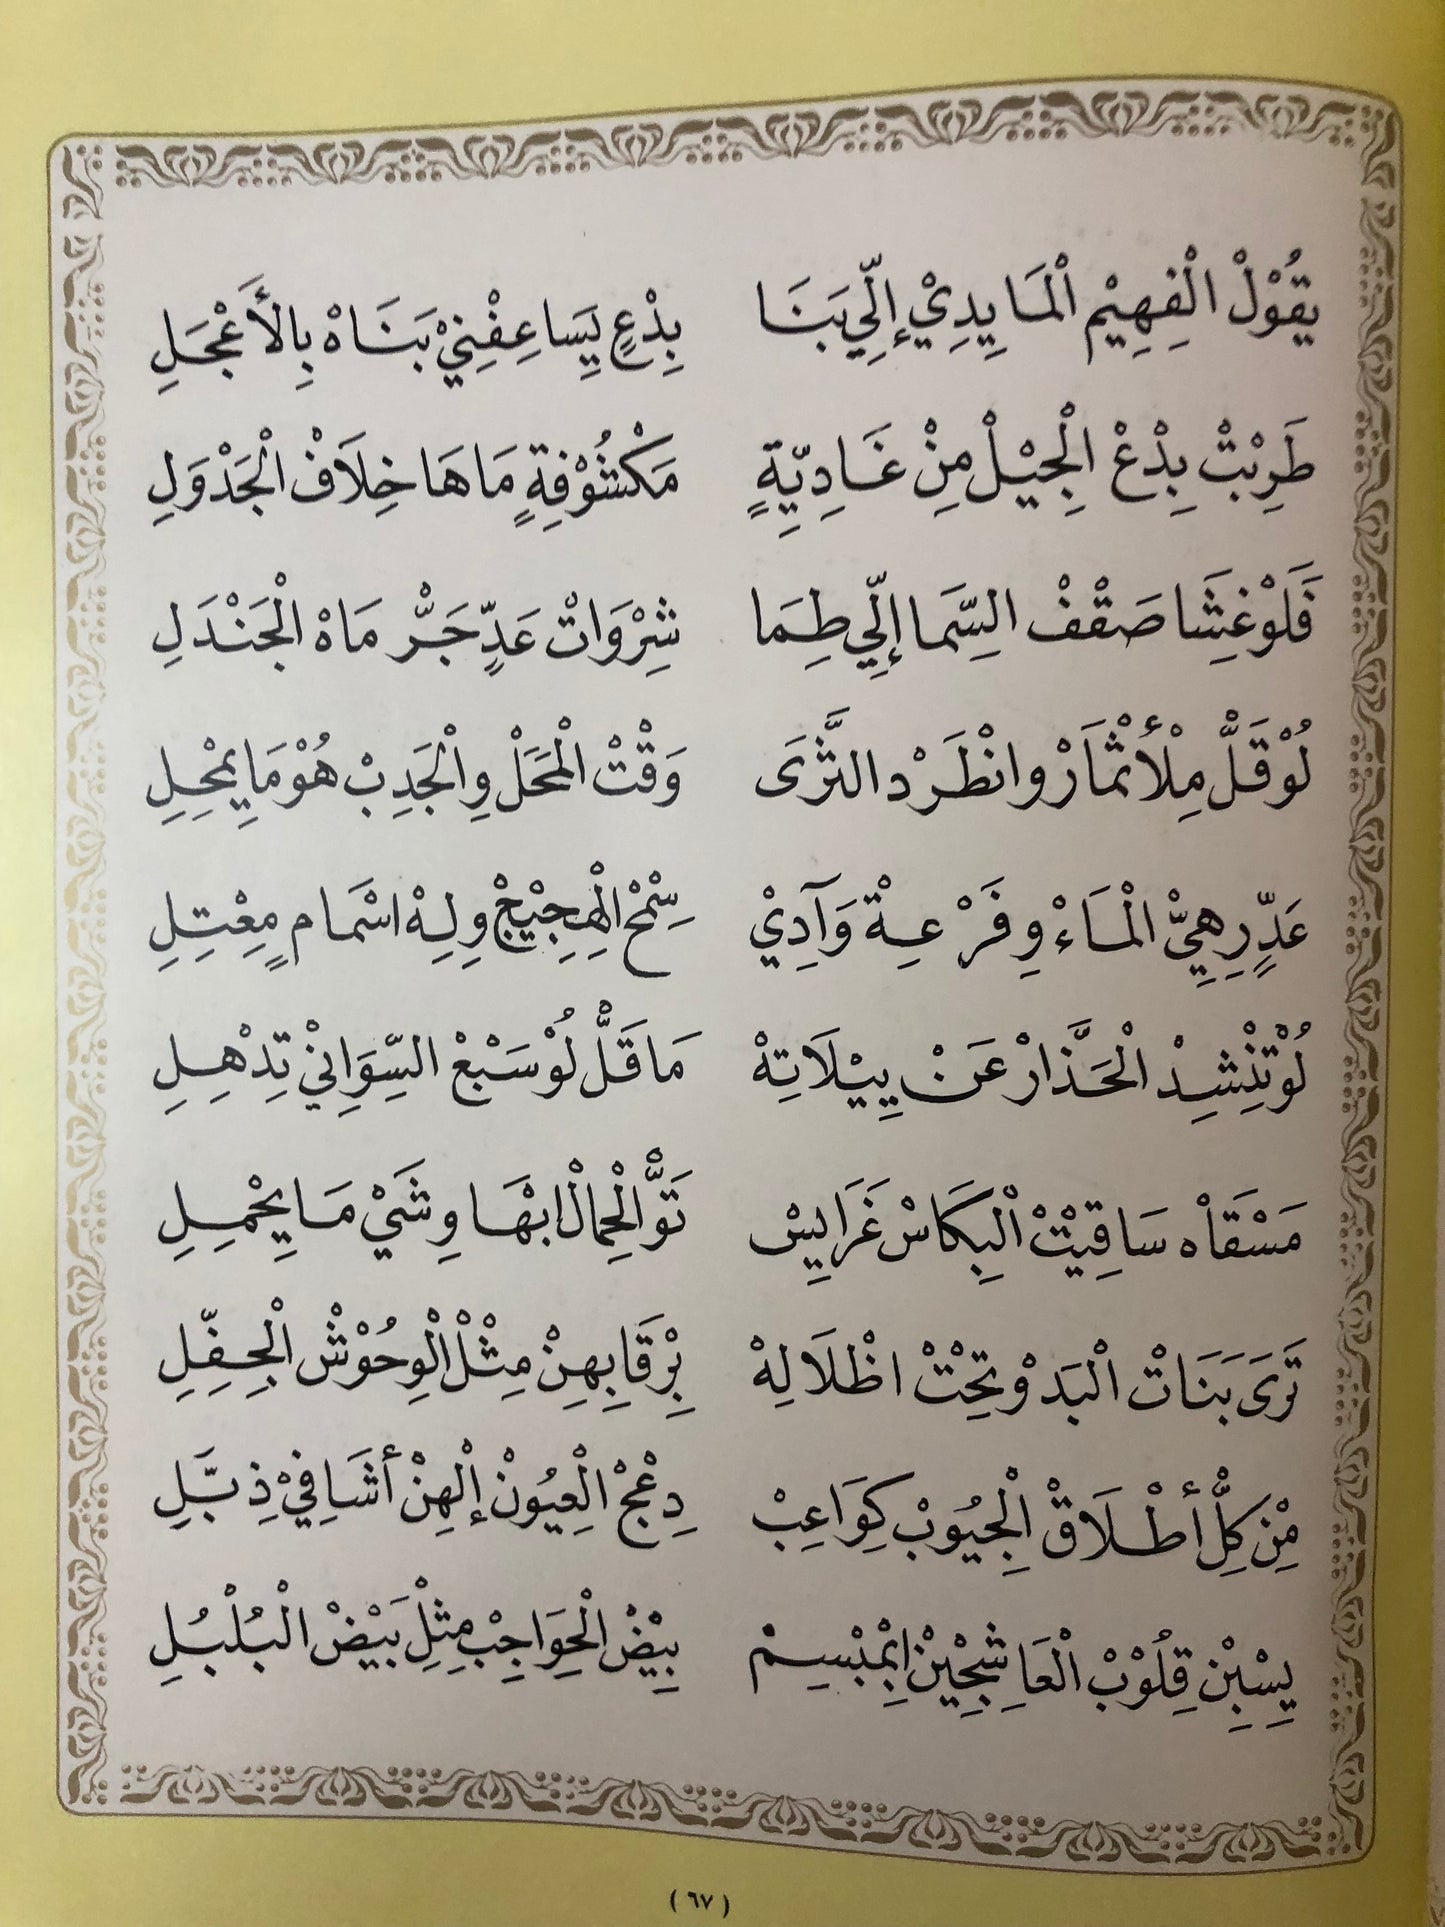 يقُوْلْ الْفِهِيْم الْمَايِدِيْ إلّي بَنَا بِدْعٍ يِسَاعِفْنِيْ بَنَاهْ بِالأَعْجَلِ
طَرِبْتْ بِدْعْ الْجِيْلْ مِنْ غَادِيّةٍ مَكْشُوْفِةٍ مَاهَا خِلَافْ الْجَدْوَلِ
فَلَوْ غِثَنَا صَقْفْ السِّمَا إلّي طِمَا شِرْوَاتْ عَدٍّ جَرّْ مَاهْ الْجَنْدَلِ
لُوْ قَلّْ مِلْأثْمَارْ وانْظَرْد الثَّرَى وَقْتْ الْمَحَلْ وِالْجَدِبْ هُوْ مَا يِمْحِلِ
عَدٍّ رِهِيّْ الْمَاءْ وِفَرْعِةْ وَآدِيْ سِمْحْ الْهِجِيْجْ وِلِهْ اسْمَامٍ مِعْتِلِ
لُوْ تْنْشِدْ الْحَذَّارْ عَنْ يِيْلَاتِهْ مَا قَلّْ لُوْ سَبْعْ السِّوَانِيْ تِدْهِلِ
مَسْقَاْه سَاقِيْتْ الْبِكَاسْ غَرَايِسْ تَوّْ الْحِمَالْ ابْهَا وِشَيْ مَا يِحْمِلِ
تَرَى بَنَاتْ الْبَدوْ تِحْتْ اظْلَالِهْ بِرْقَابِهِنْ مِثْلْ الْوِحُوْشْ الْجِفِّلِ
مِنْ كِلّْ أطْلَاقْ الْجِيُوْبْ كِوَاعِبْ دِعْجْ الْعِيُونْ إلْهِنْ أشَافِيْ ذِبَّلِ
يِسْبِنْ قِلُوْبْ الْعَاشِجِيْنْ ابْمِبْسِمْ بِيْضْ الْحِوَاجِبْ مِثِلْ بَيْضْ الْبُلْبُلِ
(٦٧)